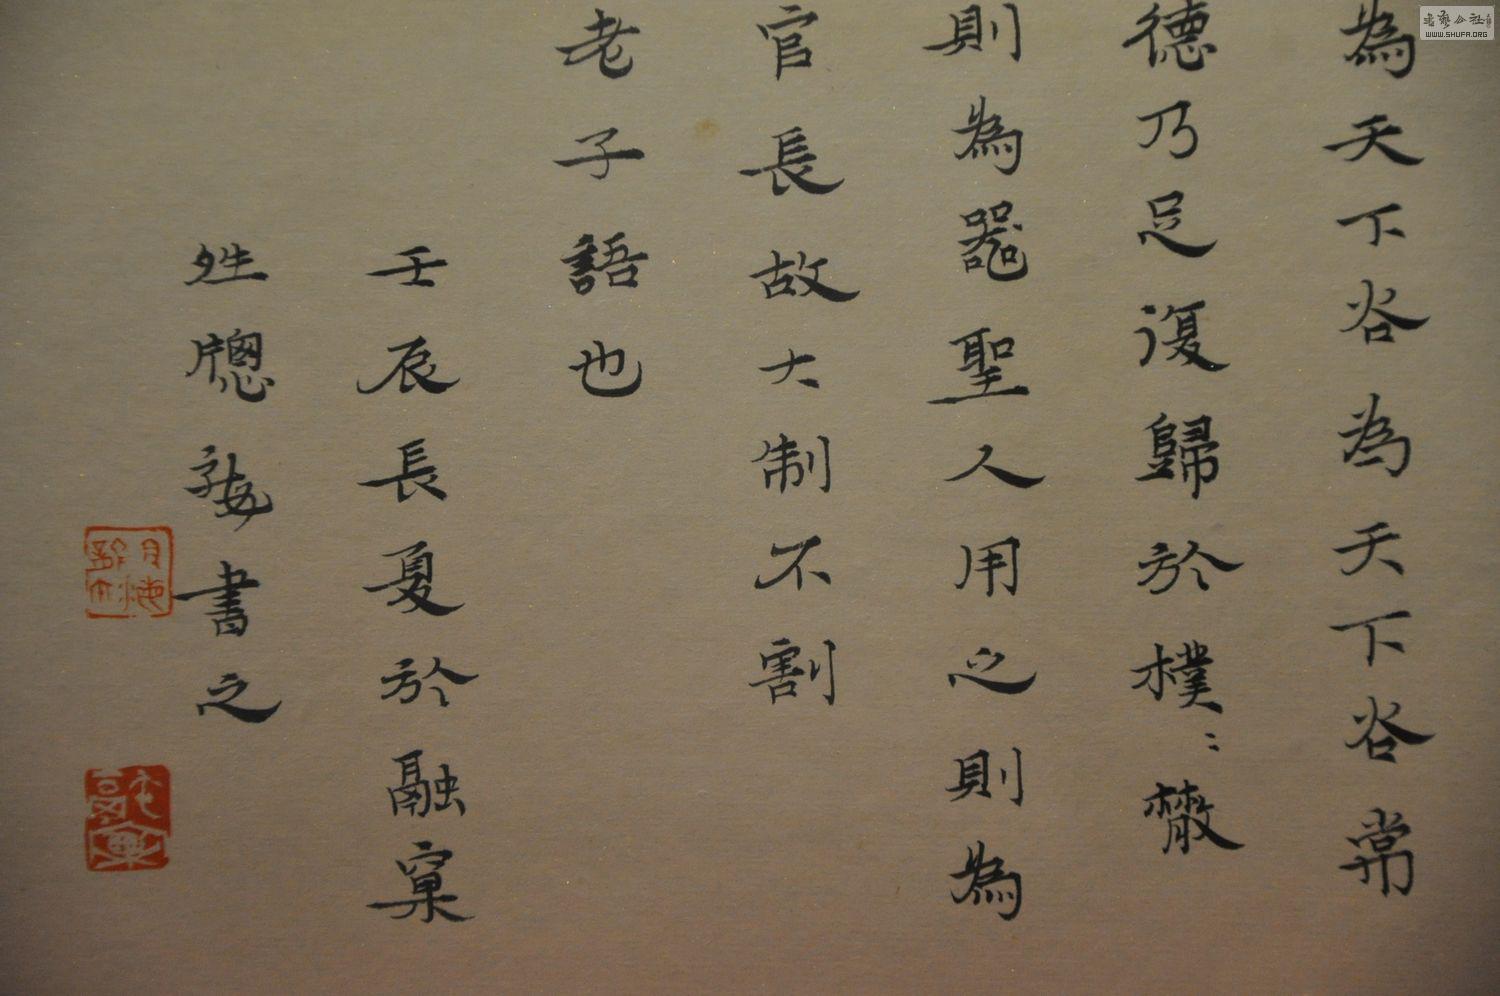 為天下谷為天下谷常
德乃足復歸於樸〻散
則為器聖人用之則為
官長故大制不割
老子語也
壬辰長夏於融窠
書之
WWW.SHUFA.ORG